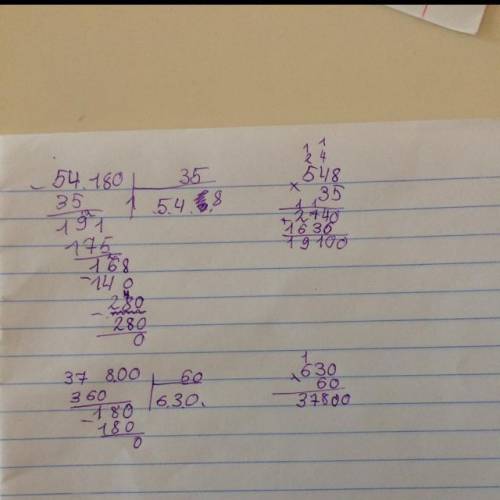 - 54.180 | 35
35 1 5.4.8
191
175
168
- 140
280
- 280
0
1 1
2 4
548
× 35
1 1
+ 2740
1630
19100
37 800 | 60
360 630.
- 180
- 180
0
1
630
× 60
37800